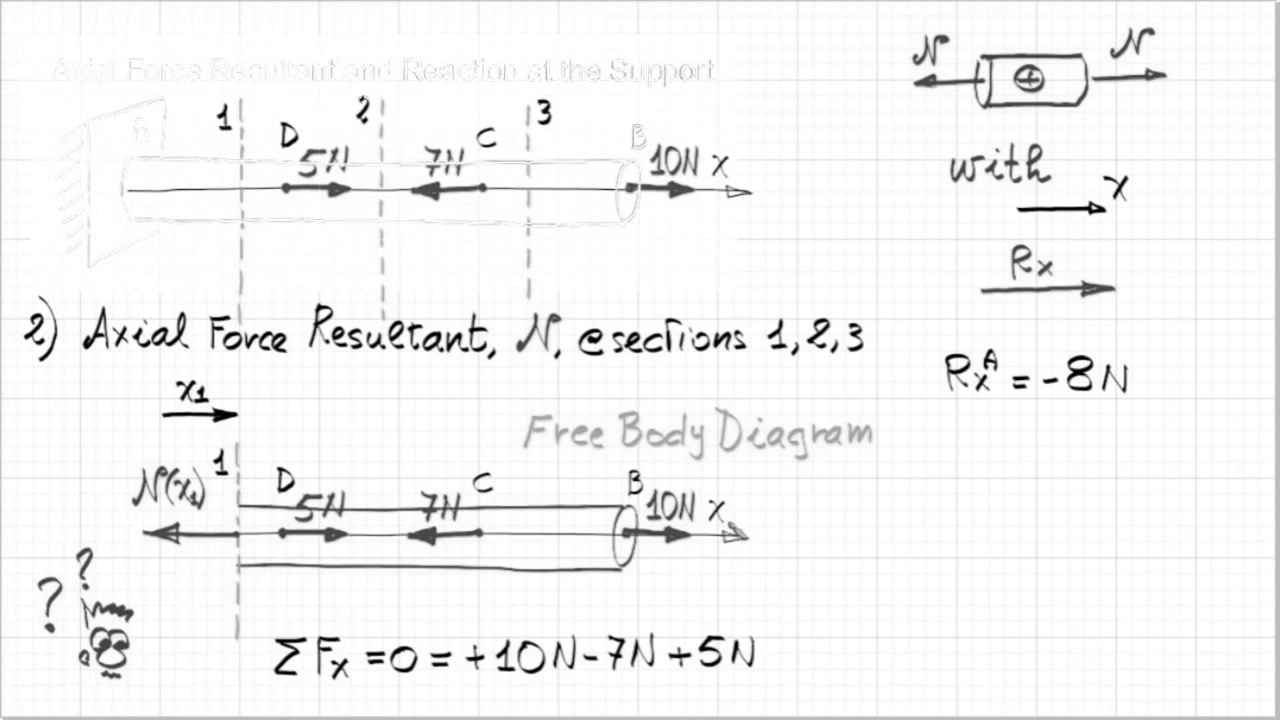 Axial Force Resultant and Reaction at the Support
N N
A 1 D 5N 2 7N C 3 B 10N x
⊕
with
x
Rx
2) Axial Force Resultant, N, @sections 1,2,3
RxA = -8N
x1
Free Body Diagram
N(x1) 1 D 5N 7N C B 10N x
? ?
ΣFx = 0 = +10N-7N+5N